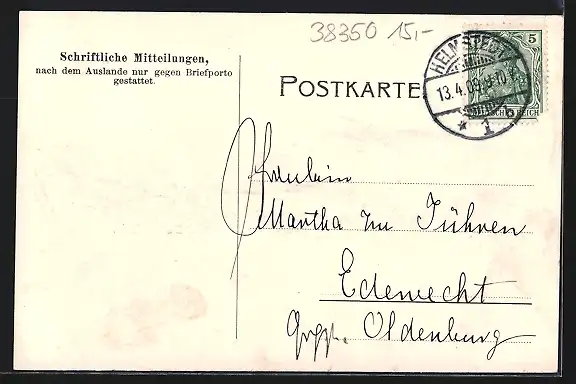 38350 15,-
Schriftliche Mitteilungen,
nach dem Auslande nur gegen Briefporto
gestattet.
POSTKARTE
5
HELMSTEDT
13.4.09.9-10
* 1 b
REICH
Fräulein
Martha zu Jühren
Edewecht
Grzgh. Oldenburg